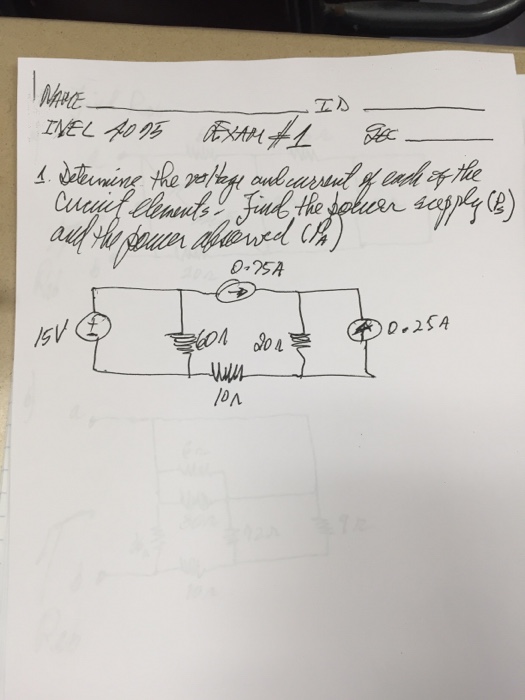 NAME ID
INEL 4075 EXAM #1 SEC
1. Determine the voltage and current of each of the
circuit elements. Find the power supply (Ps)
and the power absorved (PA)
0.75A
15V
60Ω
20Ω
0.25A
10Ω